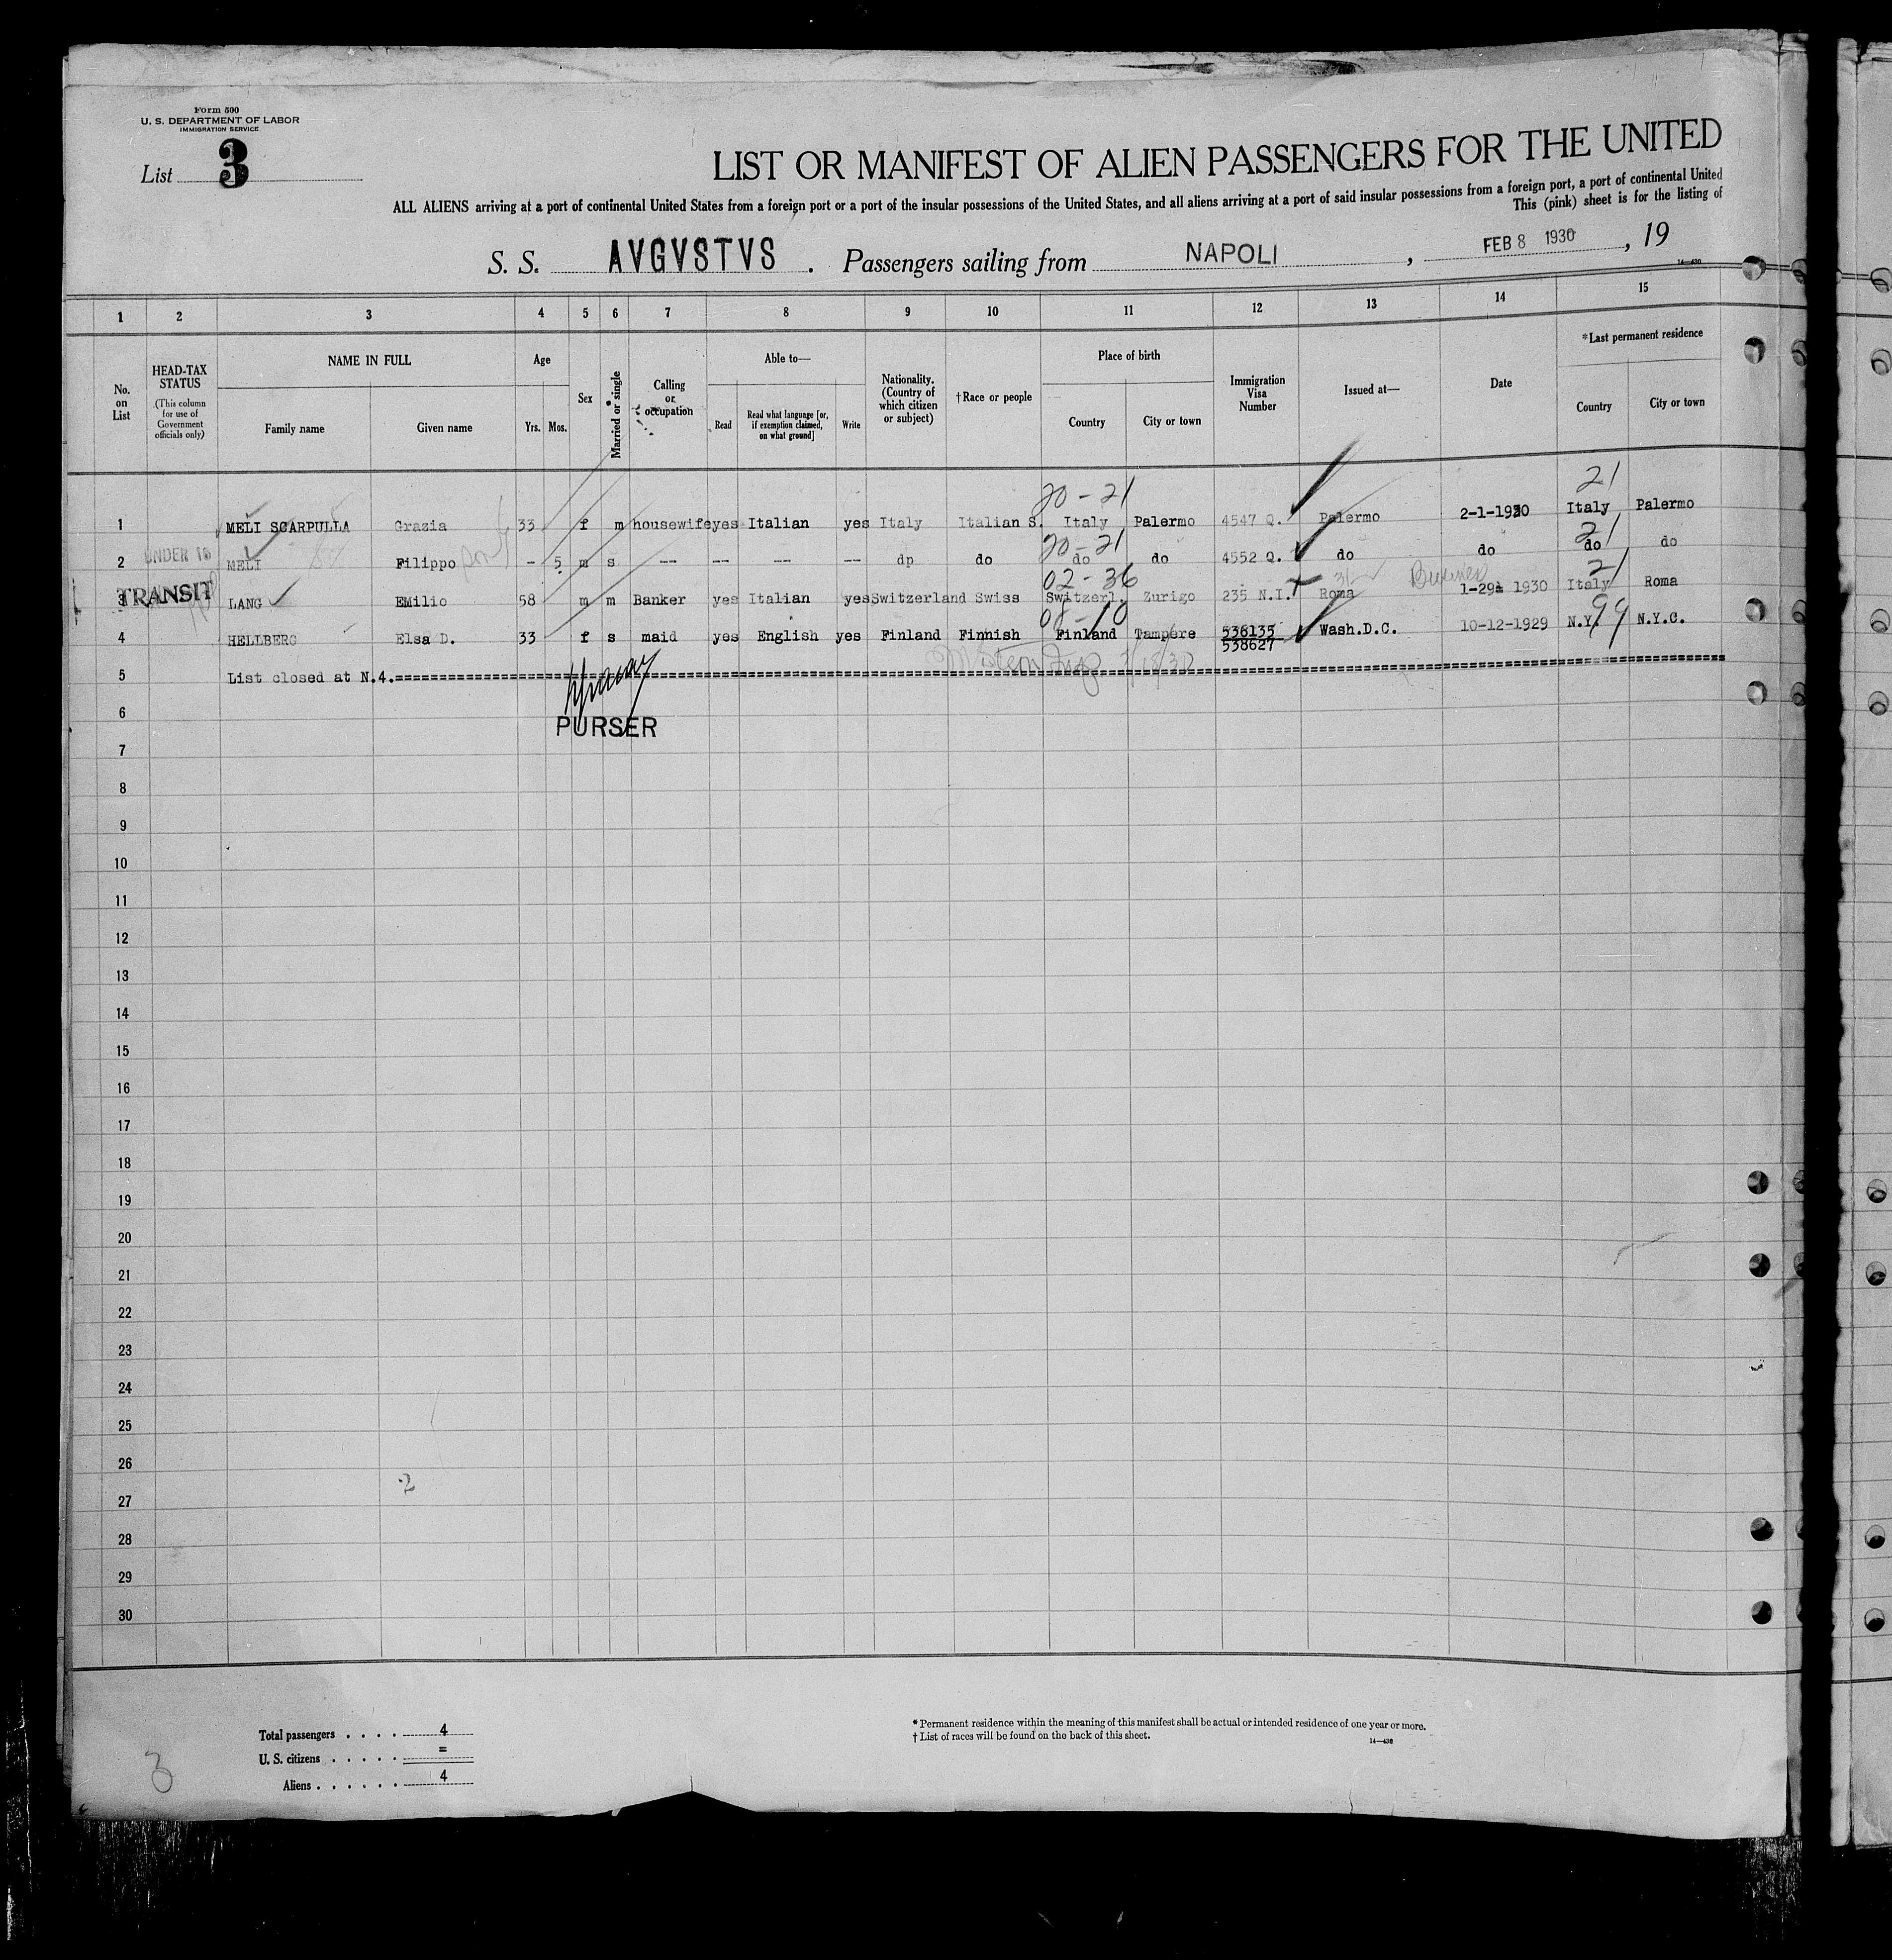 Form 500
U. S. DEPARTMENT OF LABOR
IMMIGRATION SERVICE
List 3
LIST OR MANIFEST OF ALIEN PASSENGERS FOR THE UNITED
ALL ALIENS arriving at a port of continental United States from a foreign port or a port of the insular possessions of the United States, and all aliens arriving at a port of said insular possessions from a foreign port, a port of continental United
This (pink) sheet is for the listing of
S. S. AVGVSTVS . Passengers sailing from NAPOLI , FEB 8 1930 , 19
14—430
1 2 3 4 5 6 7 8 9 10 11 12 13 14 15
No. on List
HEAD-TAX STATUS
(This column for use of Government officials only)
NAME IN FULL
Family name Given name
Age
Yrs. Mos.
Sex
Married or single
Calling or occupation
Able to—
Read
Read what language [or, if exemption claimed, on what ground]
Write
Nationality. (Country of which citizen or subject)
†Race or people
Place of birth
Country City or town
Immigration Visa Number
Issued at—
Date
*Last permanent residence
Country City or town
20-21 21
1 MELI SCARPULLA Grazia 33 f m housewife yes Italian yes Italy Italian S. Italy Palermo 4547 Q. Palermo 2-1-1930 Italy Palermo
20-21 21
2 UNDER 16 MELI Filippo - 5 m s -- -- -- -- dp do do do 4552 Q. do do do do
02-36 21
3 TRANSIT LANG EMilio 58 m m Banker yes Italian yes Switzerland Swiss Switzerl. Zurigo 235 N.I. Roma 1-29 1930 Italy Roma
Business
08-10 99
4 HELLBERG Elsa D. 33 f s maid yes English yes Finland Finnish Finland Tampere 536135 Wash.D.C. 10-12-1929 N.Y. N.Y.C.
538627
5 List closed at N.4.
PURSER
6
7
8
9
10
11
12
13
14
15
16
17
18
19
20
21
22
23
24
25
26
2
27
28
29
30
Total passengers . . . . 4
U. S. citizens . . . . . =
Aliens . . . . . . 4
3
* Permanent residence within the meaning of this manifest shall be actual or intended residence of one year or more.
† List of races will be found on the back of this sheet.
14—430